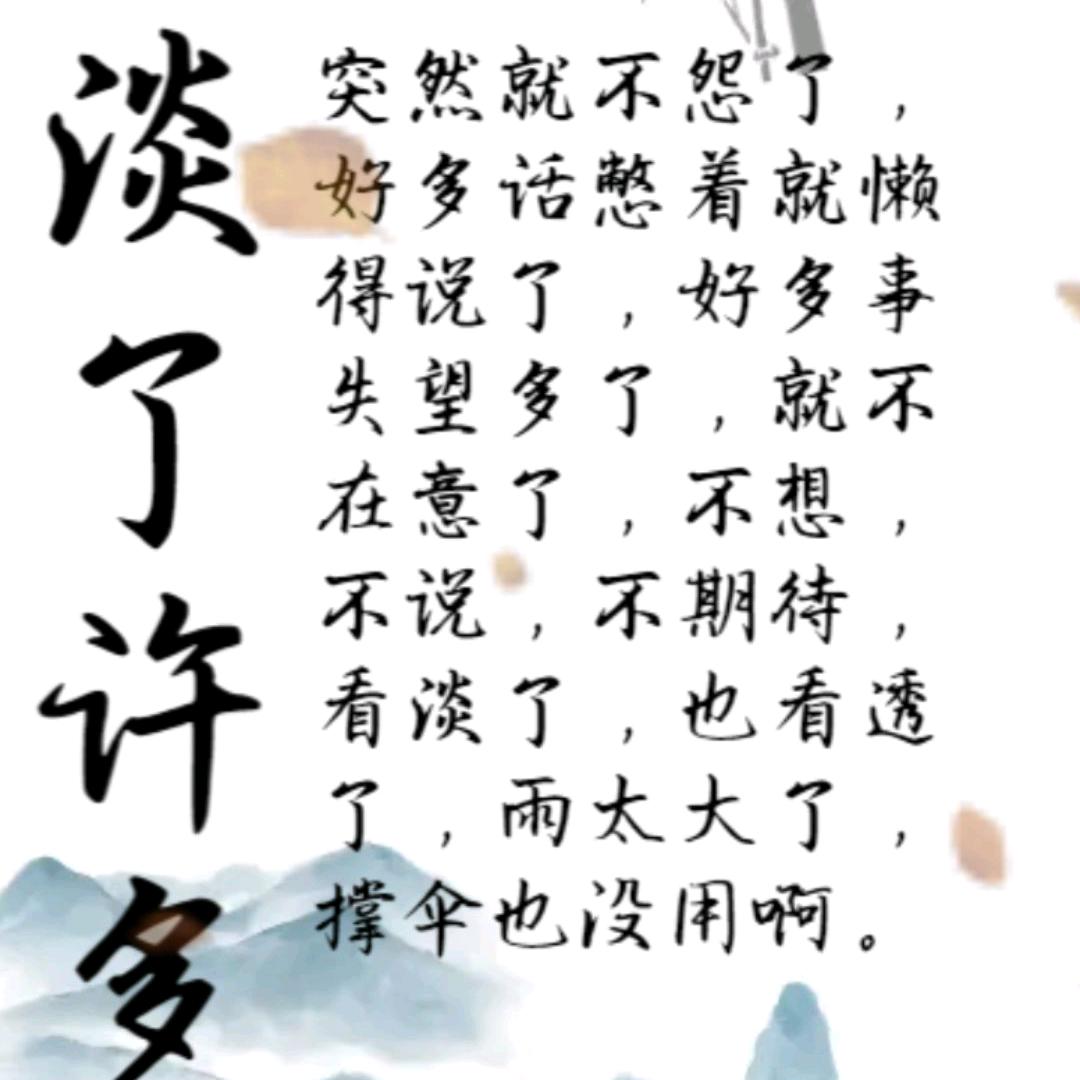 淡了许多
突然就不怨了，
好多话憋着就懒
得说了，好多事
失望多了，就不
在意了，不想，
不说，不期待，
看淡了，也看透
了，雨太大了，
撑伞也没用啊。